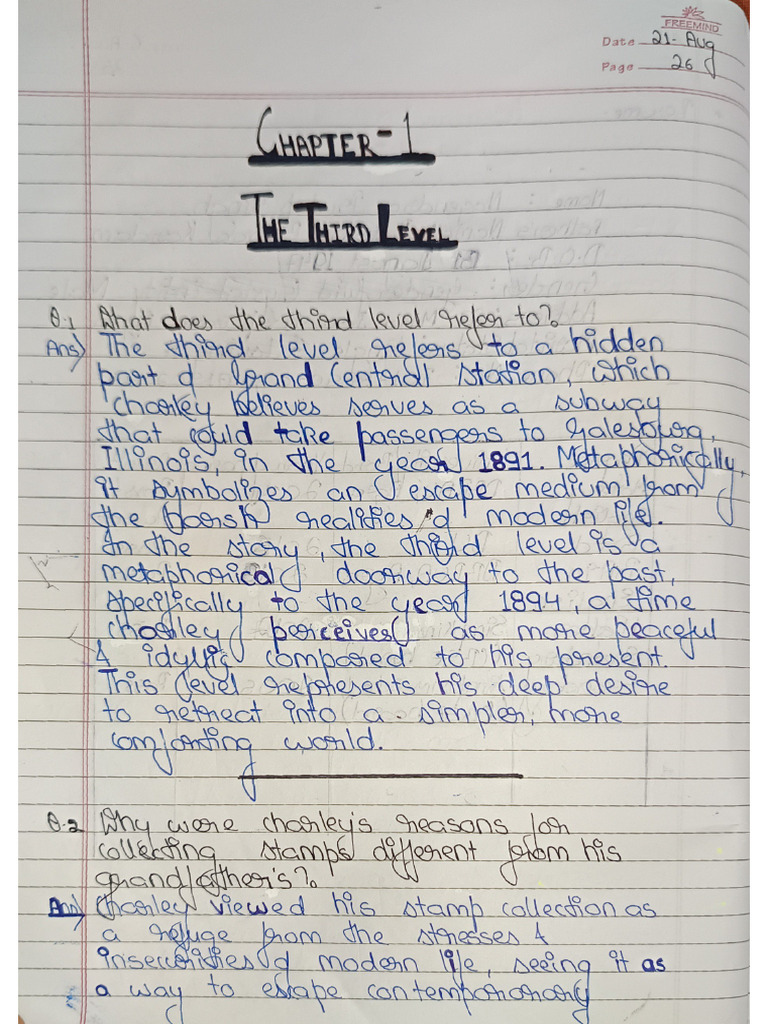 FREEMIND
Date 21-Aug
Page 26
CHAPTER-1
THE THIRD LEVEL
Q.1 What does the third level refer to?
Ans) The third level refers to a hidden
part of Grand Central station, which
charley believes serves as a subway
that could take passengers to Galesburg,
Illinois, in the year 1891. Metaphorically,
it symbolizes an escape medium from
the harsh realities of modern life.
In the story, the third level is a
metaphorical doorway to the past,
specifically to the year 1894, a time
charley perceives as more peaceful
& idyllic compared to his present.
This level represents his deep desire
to retreat into a simpler, more
comforting world.
Q.2 Why were charley's reasons for
collecting stamps different from his
grandfather's?
Ans) Charley viewed his stamp collection as
a refuge from the stresses &
insecurities of modern life, seeing it as
a way to escape contemporary